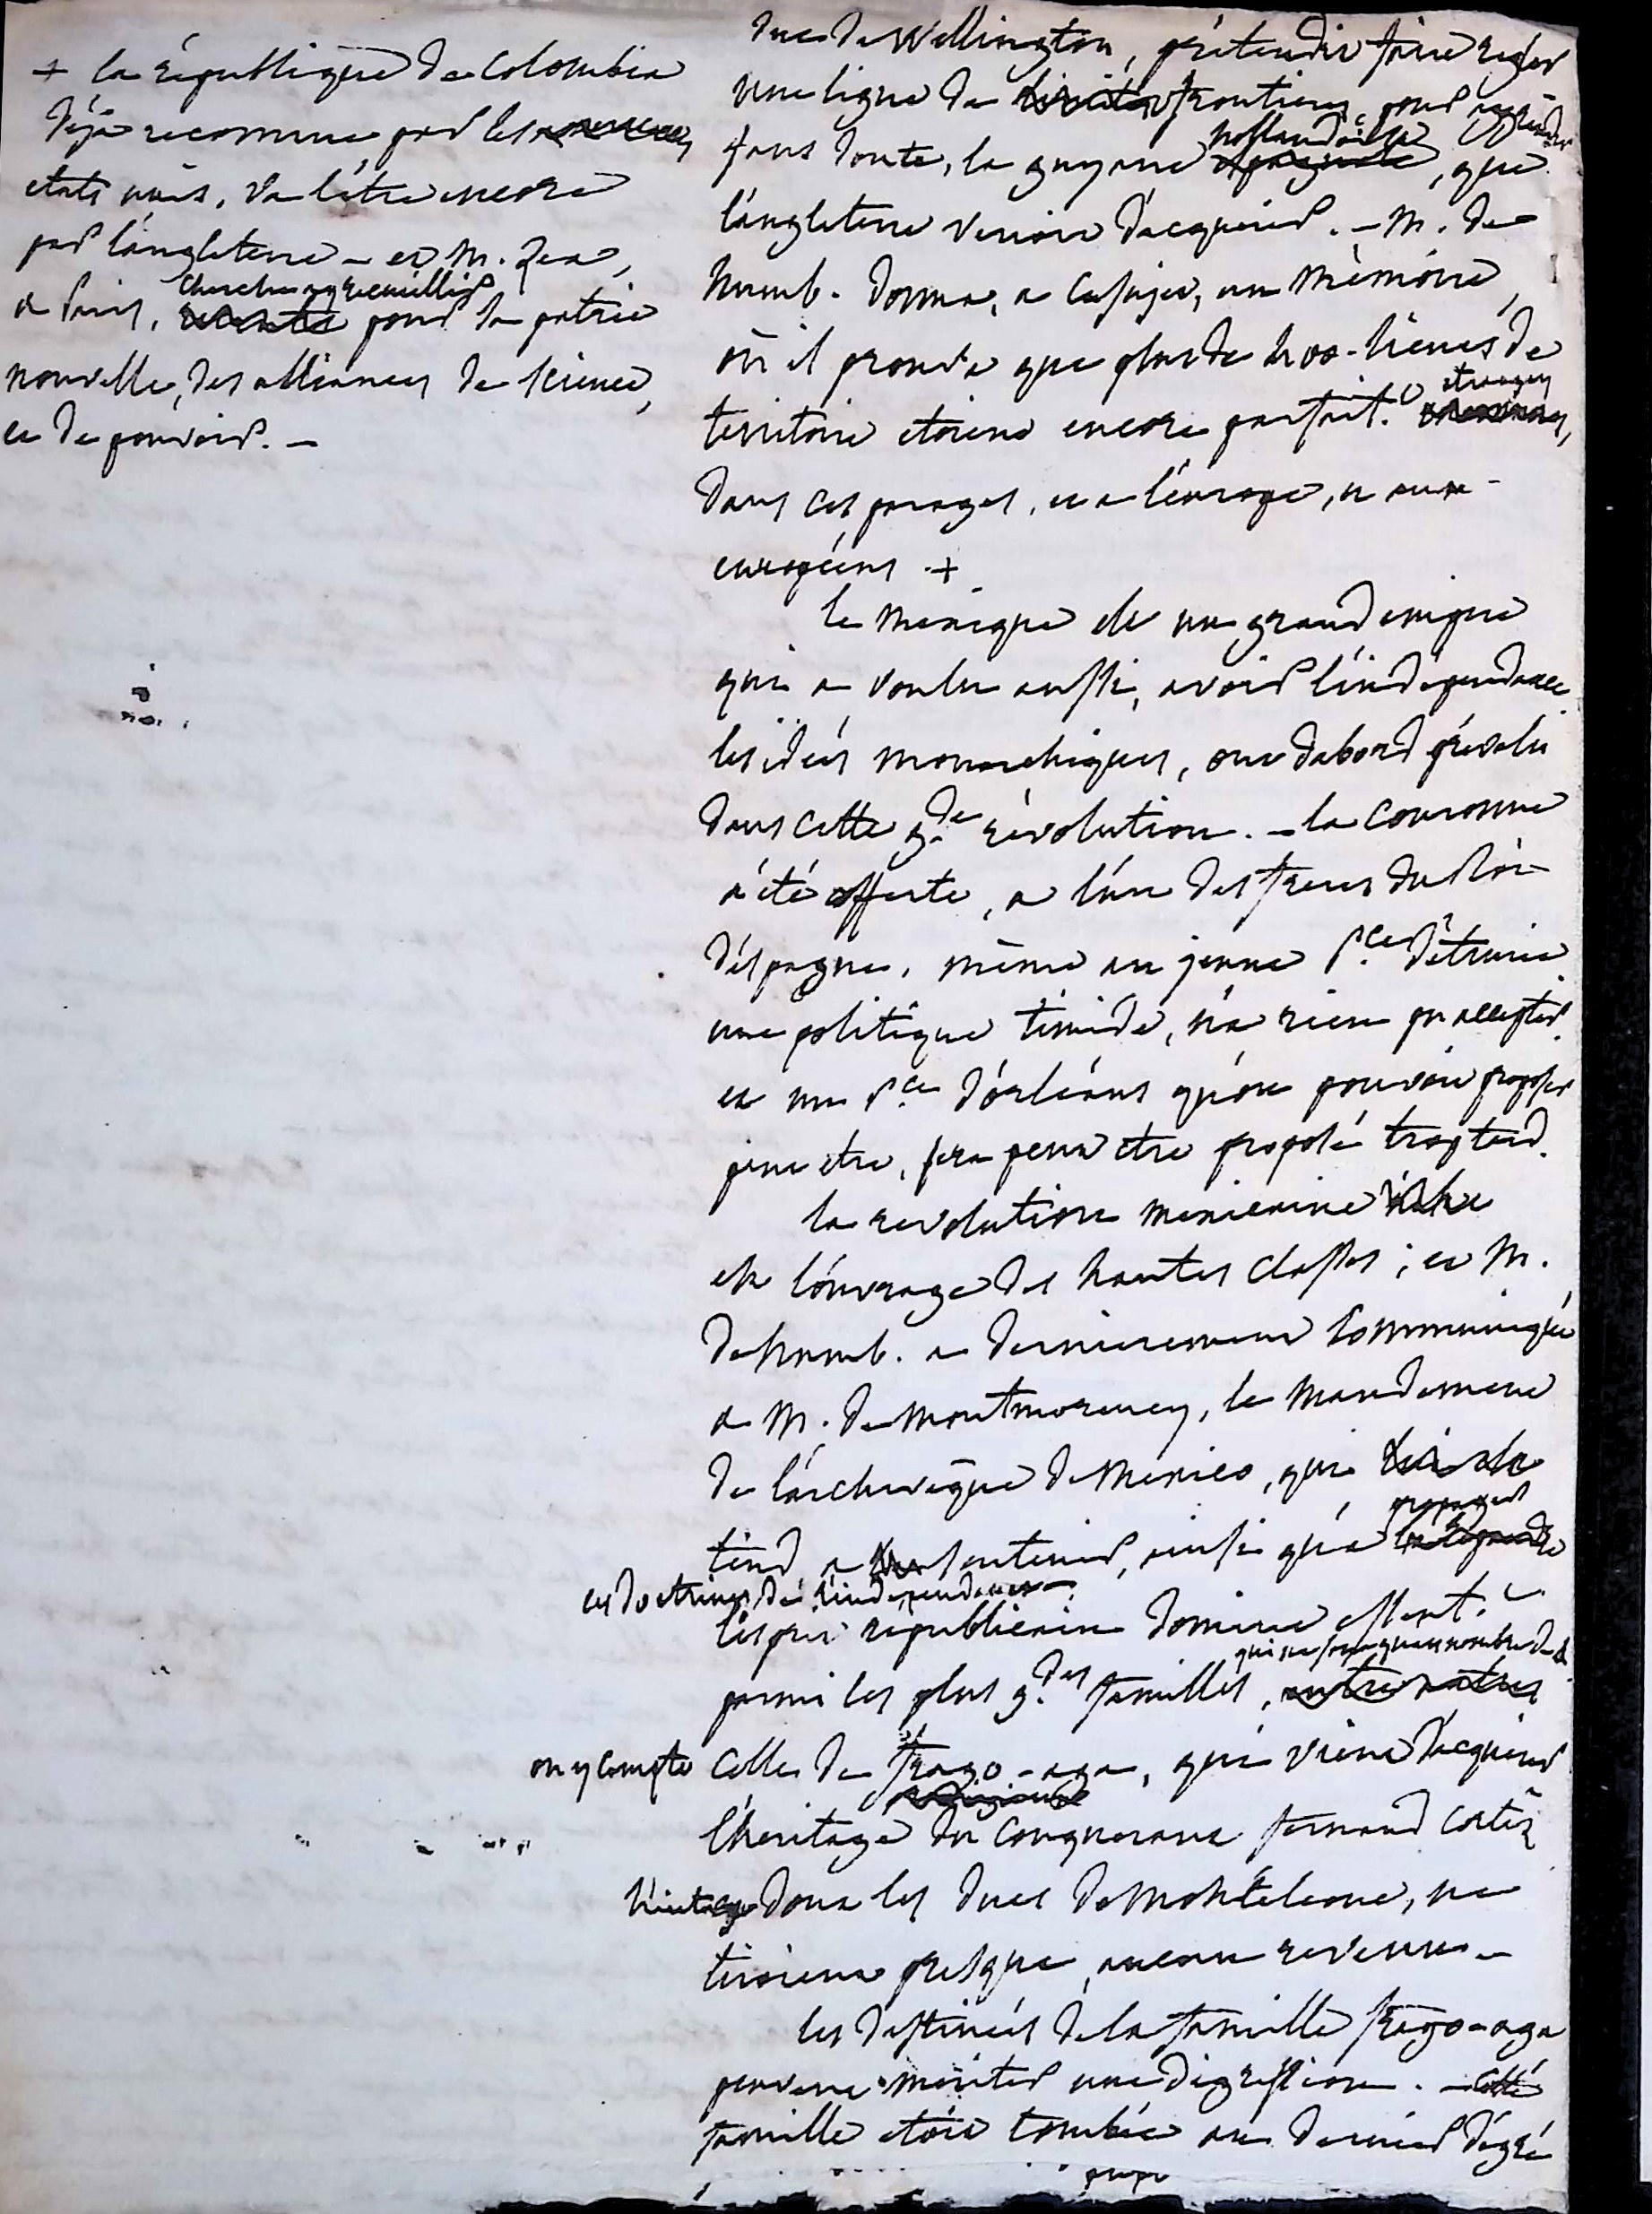 + la république de Colombia
déjà reconnue par les
etats unis, va l'être encore
par l'angleterre - et M. Zea,
a Paris, cherche a recueillir
pour sa patrie
nouvelle, des alliances de science,
et de pouvoir. -
duc de Wellington, prétendit faire regler
une ligne de frontieres, pour agrandir
sans doute, la guyane hollandaise, que
l'angleterre venoit d'acquerir. - M. de
humb. donna, a Castlereagh, un mémoire,
où il prouva que plus de lieues de
territoire etoient encore parfait.t etrangers
dans ces parages, et a l'europe, et aux
européens. +
le mexique est un grand empire
qui a voulu aussi, avoir l'indépendance.
les idées monarchiques, ont dabord prévalu
dans cette g.de révolution. - la couronne
a été offerte, a l'un des freres du Roi
d'éspagne, même au jeune P.ce d'étrurie
une politique timide, n'a rien pu accepter.
et un P.ce d'orléans qu'on pouvoit proposer
peut etre, sera peut etre proposé trop tard.
la revolution mexicaine
est l'ouvrage des hautes classes ; et M.
de humb. a dernierement communiqué
a M. de Montmorency, le mandement
de l'archevêque de Mexico, qui
tend a soutenir, ainsi qu'a propager
les doctrines de l'indépendance -
l'esprit republicain domine
parmi les plus g.des familles, entre autres
on y compte celle de frago-aga, qui vient d'acquerir
l'héritage du conquerant fernand cortéz
héritage dont les ducs de Monteleone, ne
tiroient presque, aucun revenu. -
les destinées de la famille frago-aga
peuvent mériter une digression. - cette
famille etoit tombée au dernier dégré